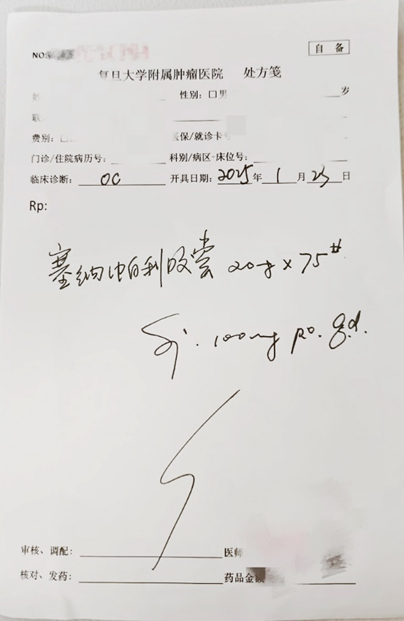 NO:
自 备
复旦大学附属肿瘤医院 处方笺
性别：□男 岁
费别：□ 医保/就诊卡号
门诊/住院病历号： 科别/病区-床位号：
临床诊断： OC 开具日期：2025年 1 月 23 日
Rp:
塞纳帕利胶囊 20mg x 75#
Sj. 100mg po. q.d.
审核、调配： 医师
核对、发药： 药品金额